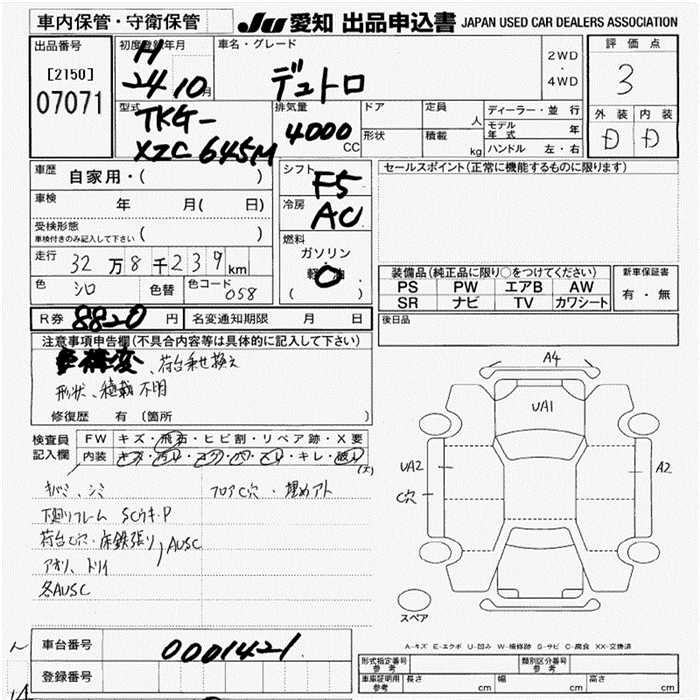 車内保管・守衛保管
JU 愛知 出品申込書 JAPAN USED CAR DEALERS ASSOCIATION
出品番号
[2150]
07071
初度登録年月
H
24 10月
車名・グレード
デュトロ
2WD
・
4WD
評価点
3
外装 内装
D D
型式
TKG-
XZC645M
排気量
4000
CC
ドア
定員
人
形状
積載
kg
ディーラー・並行
モデル年式 年
ハンドル 左・右
車歴 自家用・( )
車検 年 月( 日)
受検形態
車検付きのみ記入して下さい ( )
走行 32万8千239km
色 シロ 色替 色コード 058
シフト F5
冷房 AC
燃料
ガソリン
・
軽油
( )
セールスポイント(正常に機能するものに限ります)
装備品(純正品に限り○をつけてください)
PS PW エアB AW
SR ナビ TV カワシート
新車保証書
有・無
R券 8820 円 名変通知期限 月 日
後日品
注意事項申告欄(不具合内容等は具体的に記入して下さい)
構変、荷台乗せ換え
形状、積載不明
修復歴 有 (箇所 )
検査員
記入欄
FW キズ・飛石・ヒビ割・リペア跡・X要
内装 キズ・汚レ・コゲ・穴・スレ・キレ・破レ
キバミ、シミ
フロアC穴・埋めアト
下廻りフレーム SCウキ・P
荷台C穴・床鉄張り
アオリ、トリイ
AUSC
各AUSC
A4
UA1
UA2
C穴
A2
スペア
A-キズ E-エクボ U-凹み W-補修跡 S-サビ C-腐食 XX-交換済
車台番号 0001421
登録番号
型式指定番号 参考
類別区分番号 参考
車庫証明用 参考 長さ cm 幅 cm 高さ cm